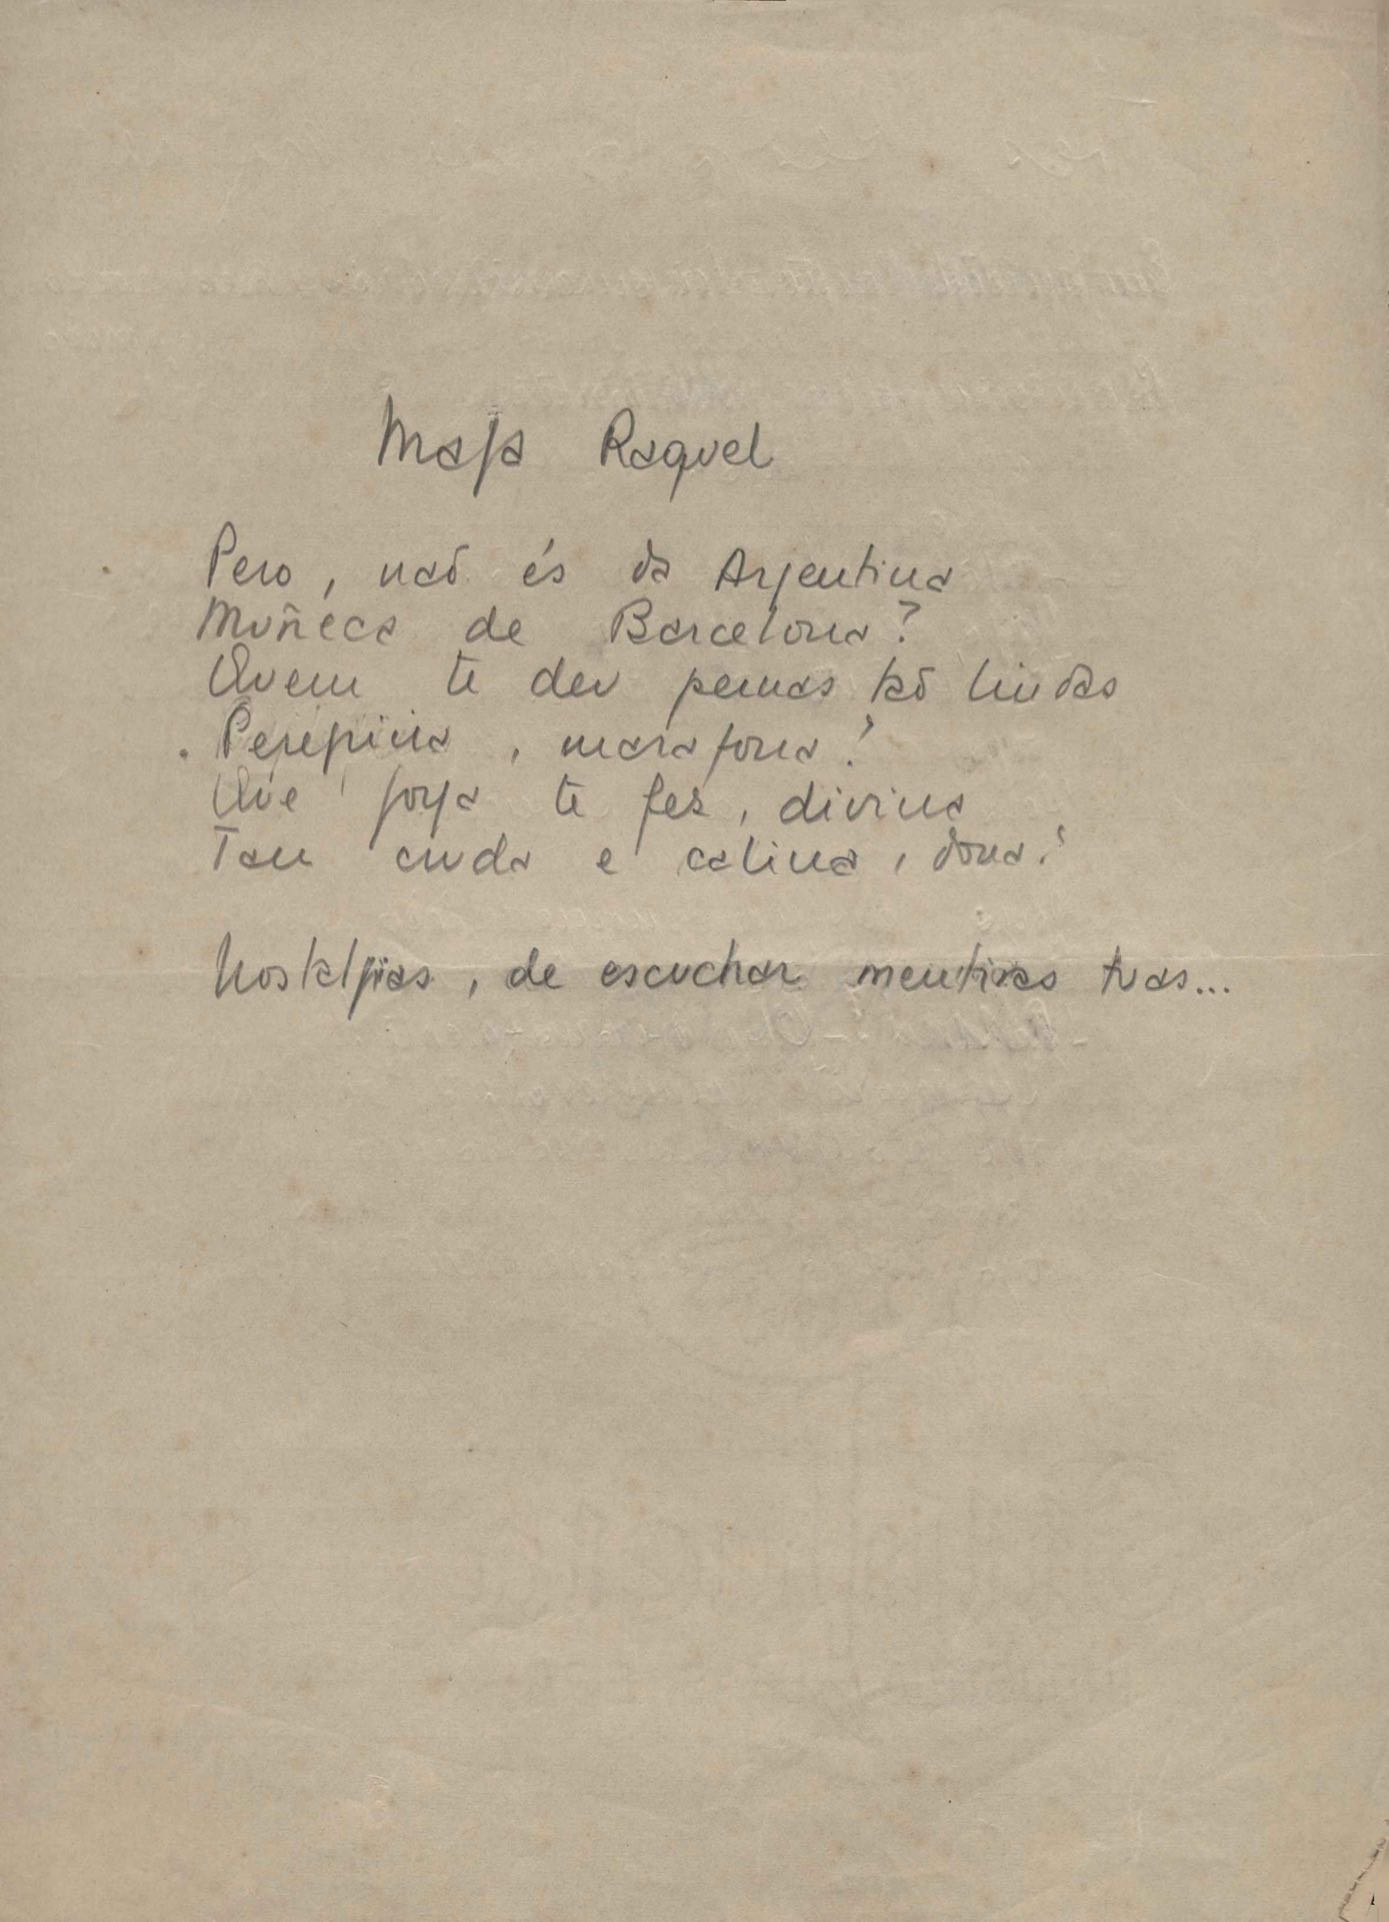 Maja Raquel
Pero, naõ és da Argentina
Muñeca de Barcelona?
Quem te deu pernas taõ lindas
Peregrina, marafona?
Que Goya te fez, divina
Tan cruda e calina, dona?
Nostalgias, de escuchar mentiras tuas...